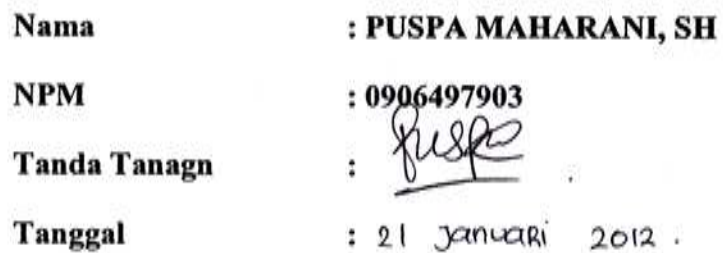 Nama : PUSPA MAHARANI, SH
NPM : 0906497903
Tanda Tanagn : Puspa
Tanggal : 21 Januari 2012 .